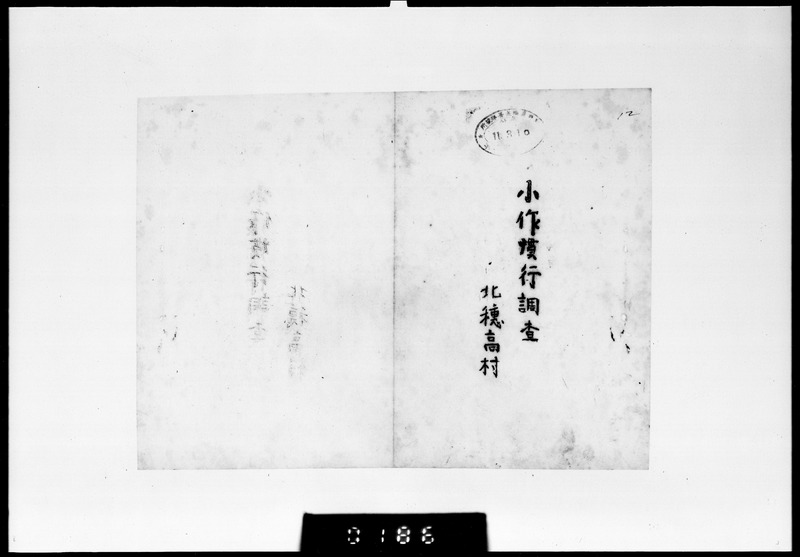 12
11.3.10
小作慣行調査
北穗高村
0186